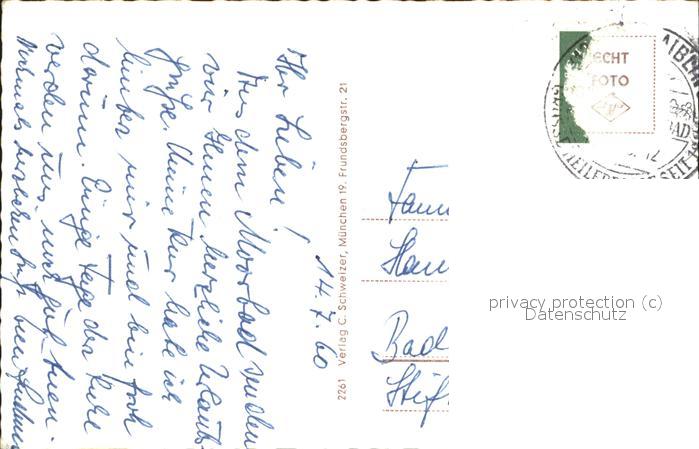 Ihr Lieben!
14.7.60
Aus dem Moorbad senden
wir Ihnen herzliche Urlaubs-
grüße. Meine Kur habe ich
hinter mir und bin froh
darum. Einige Tage der Ruhe
werden uns noch gut tuen.
Nochmals
2261 Verlag C. Schweizer, München 19, Frundsbergstr. 21
Fam
Han
Bad
Stif
ECHT
FOTO
AIBE
BAD
privacy protection (c)
Datenschutz